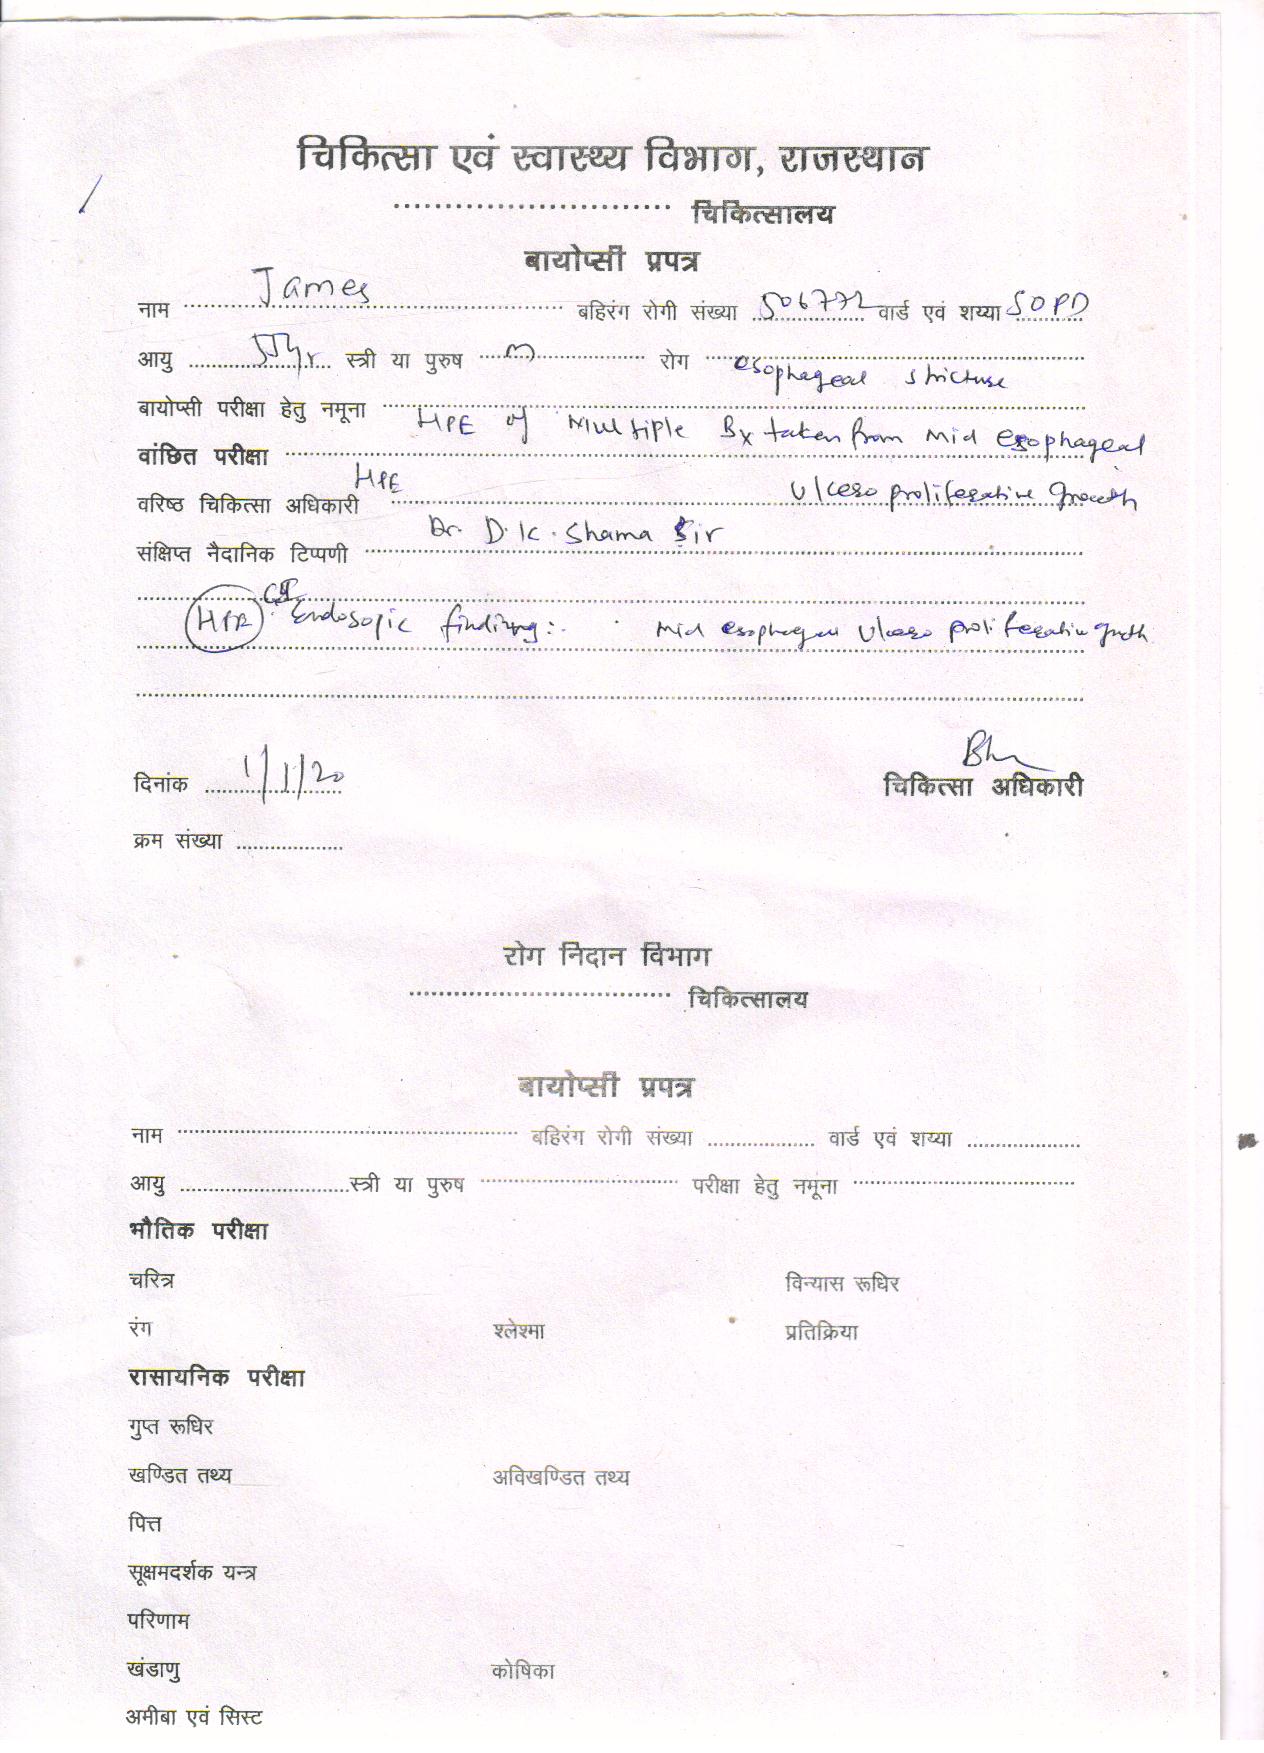 चिकित्सा एवं स्वास्थ्य विभाग, राजस्थान
........................... चिकित्सालय
बायोप्सी प्रपत्र
नाम James बहिरंग रोगी संख्या 506772 वार्ड एवं शय्या SOPD
आयु 55yr. स्त्री या पुरुष m रोग esophageal stricture
बायोप्सी परीक्षा हेतु नमूना HPE of Multiple Bx taken from Mid esophageal
वांछित परीक्षा HPE Ulcero proliferative growth
वरिष्ठ चिकित्सा अधिकारी Dr. D.K. Shama Sir
संक्षिप्त नैदानिक टिप्पणी
HPE Endosopic finding:- Mid esophageal Ulcero proliferative growth
दिनांक 1/1/20 चिकित्सा अधिकारी
क्रम संख्या ..................
रोग निदान विभाग
................................ चिकित्सालय
बायोप्सी प्रपत्र
नाम ........................ बहिरंग रोगी संख्या .................. वार्ड एवं शय्या ...................
आयु ............................स्त्री या पुरुष ........................ परीक्षा हेतु नमूना ........................
भौतिक परीक्षा
चरित्र विन्यास रूधिर
रंग श्लेश्मा प्रतिक्रिया
रासायनिक परीक्षा
गुप्त रूधिर
खण्डित तथ्य अविखण्डित तथ्य
पित्त
सूक्षमदर्शक यन्त्र
परिणाम
खंडाणु कोषिका
अमीबा एवं सिस्ट